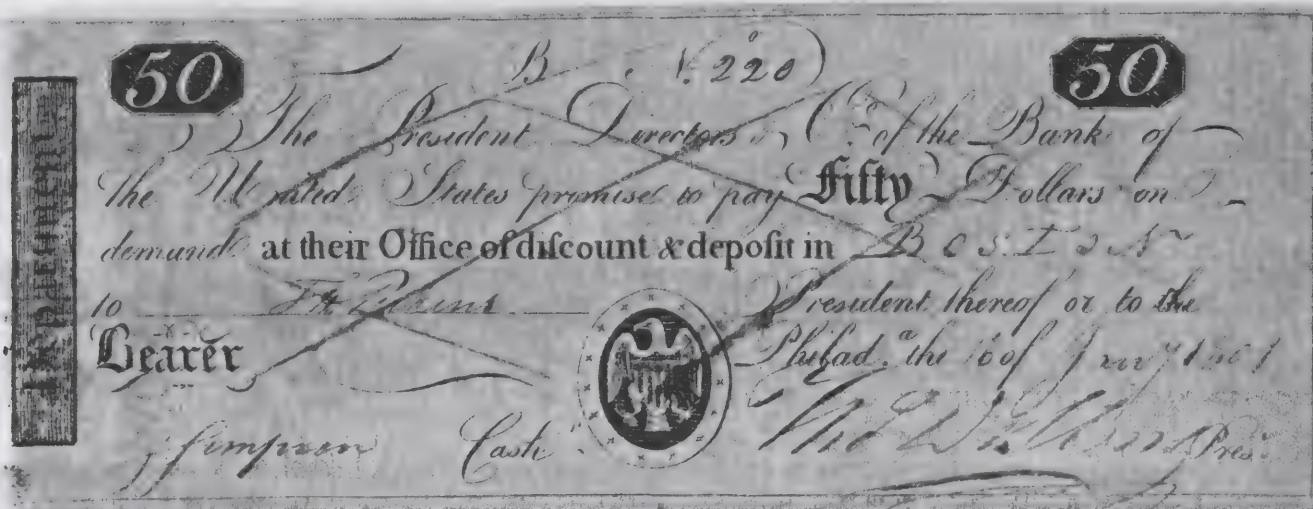 50 B No. 220 50
The President Directors & Co. of the Bank of
the United States promise to pay Fifty Dollars on
demand at their Office of diſcount & depoſit in BOSTON
to President thereof or to the
Bearer Philada. the of
J Simpson Cashr. Tho Willing Pres.